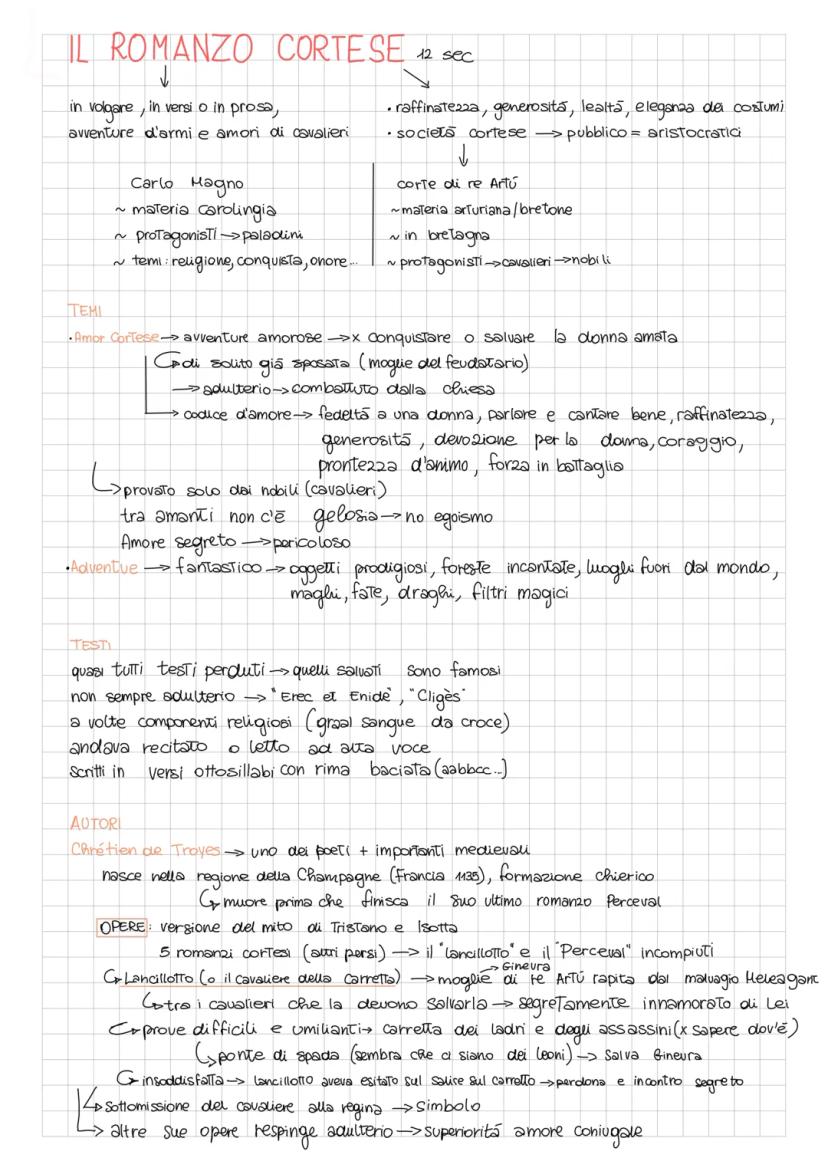 IL ROMANZO CORTESE 12 sec
in volgare, in versi o in prosa,
avventure d'armi e amori di cavalieri
• raffinatezza, generosità, lealtà, eleganza dei costumi
• società cortese → pubblico = aristocratici
Carlo Magno
~ materia carolingia
~ protagonisti → paladini
~ temi: religione, conquista, onore...
corte di re Artù
~ materia arturiana/bretone
~ in bretagna
~ protagonisti → cavalieri → nobili
TEMI
• Amor Cortese → avventure amorose → x conquistare o salvare la donna amata
↳ di solito già sposata (moglie del feudatario)
→ adulterio → combattuto dalla chiesa
→ codice d'amore → fedeltà a una donna, parlare e cantare bene, raffinatezza,
generosità, devozione per la donna, coraggio,
prontezza d'animo, forza in battaglia
↳ provato solo dai nobili (cavalieri)
tra amanti non c'è gelosia → no egoismo
Amore segreto → pericoloso
• Adventue → fantastico → oggetti prodigiosi, foreste incantate, luoghi fuori dal mondo,
maghi, fate, draghi, filtri magici
TESTI
quasi tutti testi perduti → quelli salvati sono famosi
non sempre adulterio → "Erec et Enide", "Cligès"
a volte componenti religiosi (graal sangue da croce)
andava recitato o letto ad alta voce
scritti in versi ottosillabi con rima baciata (aabbcc...)
AUTORI
Chrétien de Troyes → uno dei poeti + importanti medievali
nasce nella regione della Champagne (Francia 1135), formazione chierico
↳ muore prima che finisca il suo ultimo romanzo Perceval
OPERE: versione del mito di Tristano e Isotta
5 romanzi cortesi (altri persi) → il "lancillotto" e il "Perceval" incompiuti
→ Ginevra
↳ Lancillotto (o il cavaliere della carretta) → moglie di re Artù rapita dal malvagio Meleagant
↳ tra i cavalieri che la devono salvarla → segretamente innamorato di Lei
↳ prove difficili e umilianti → carretta dei ladri e degli assassini (x sapere dov'è)
↳ ponte di spada (sembra che ci siano dei leoni) → Salva Ginevra
↳ insoddisfatta → lancillotto aveva esitato sul salire sul carretto → perdona e incontro segreto
↳ Sottomissione del cavaliere alla regina → Simbolo
↳ altre sue opere respinge adulterio → superiorità amore coniugale